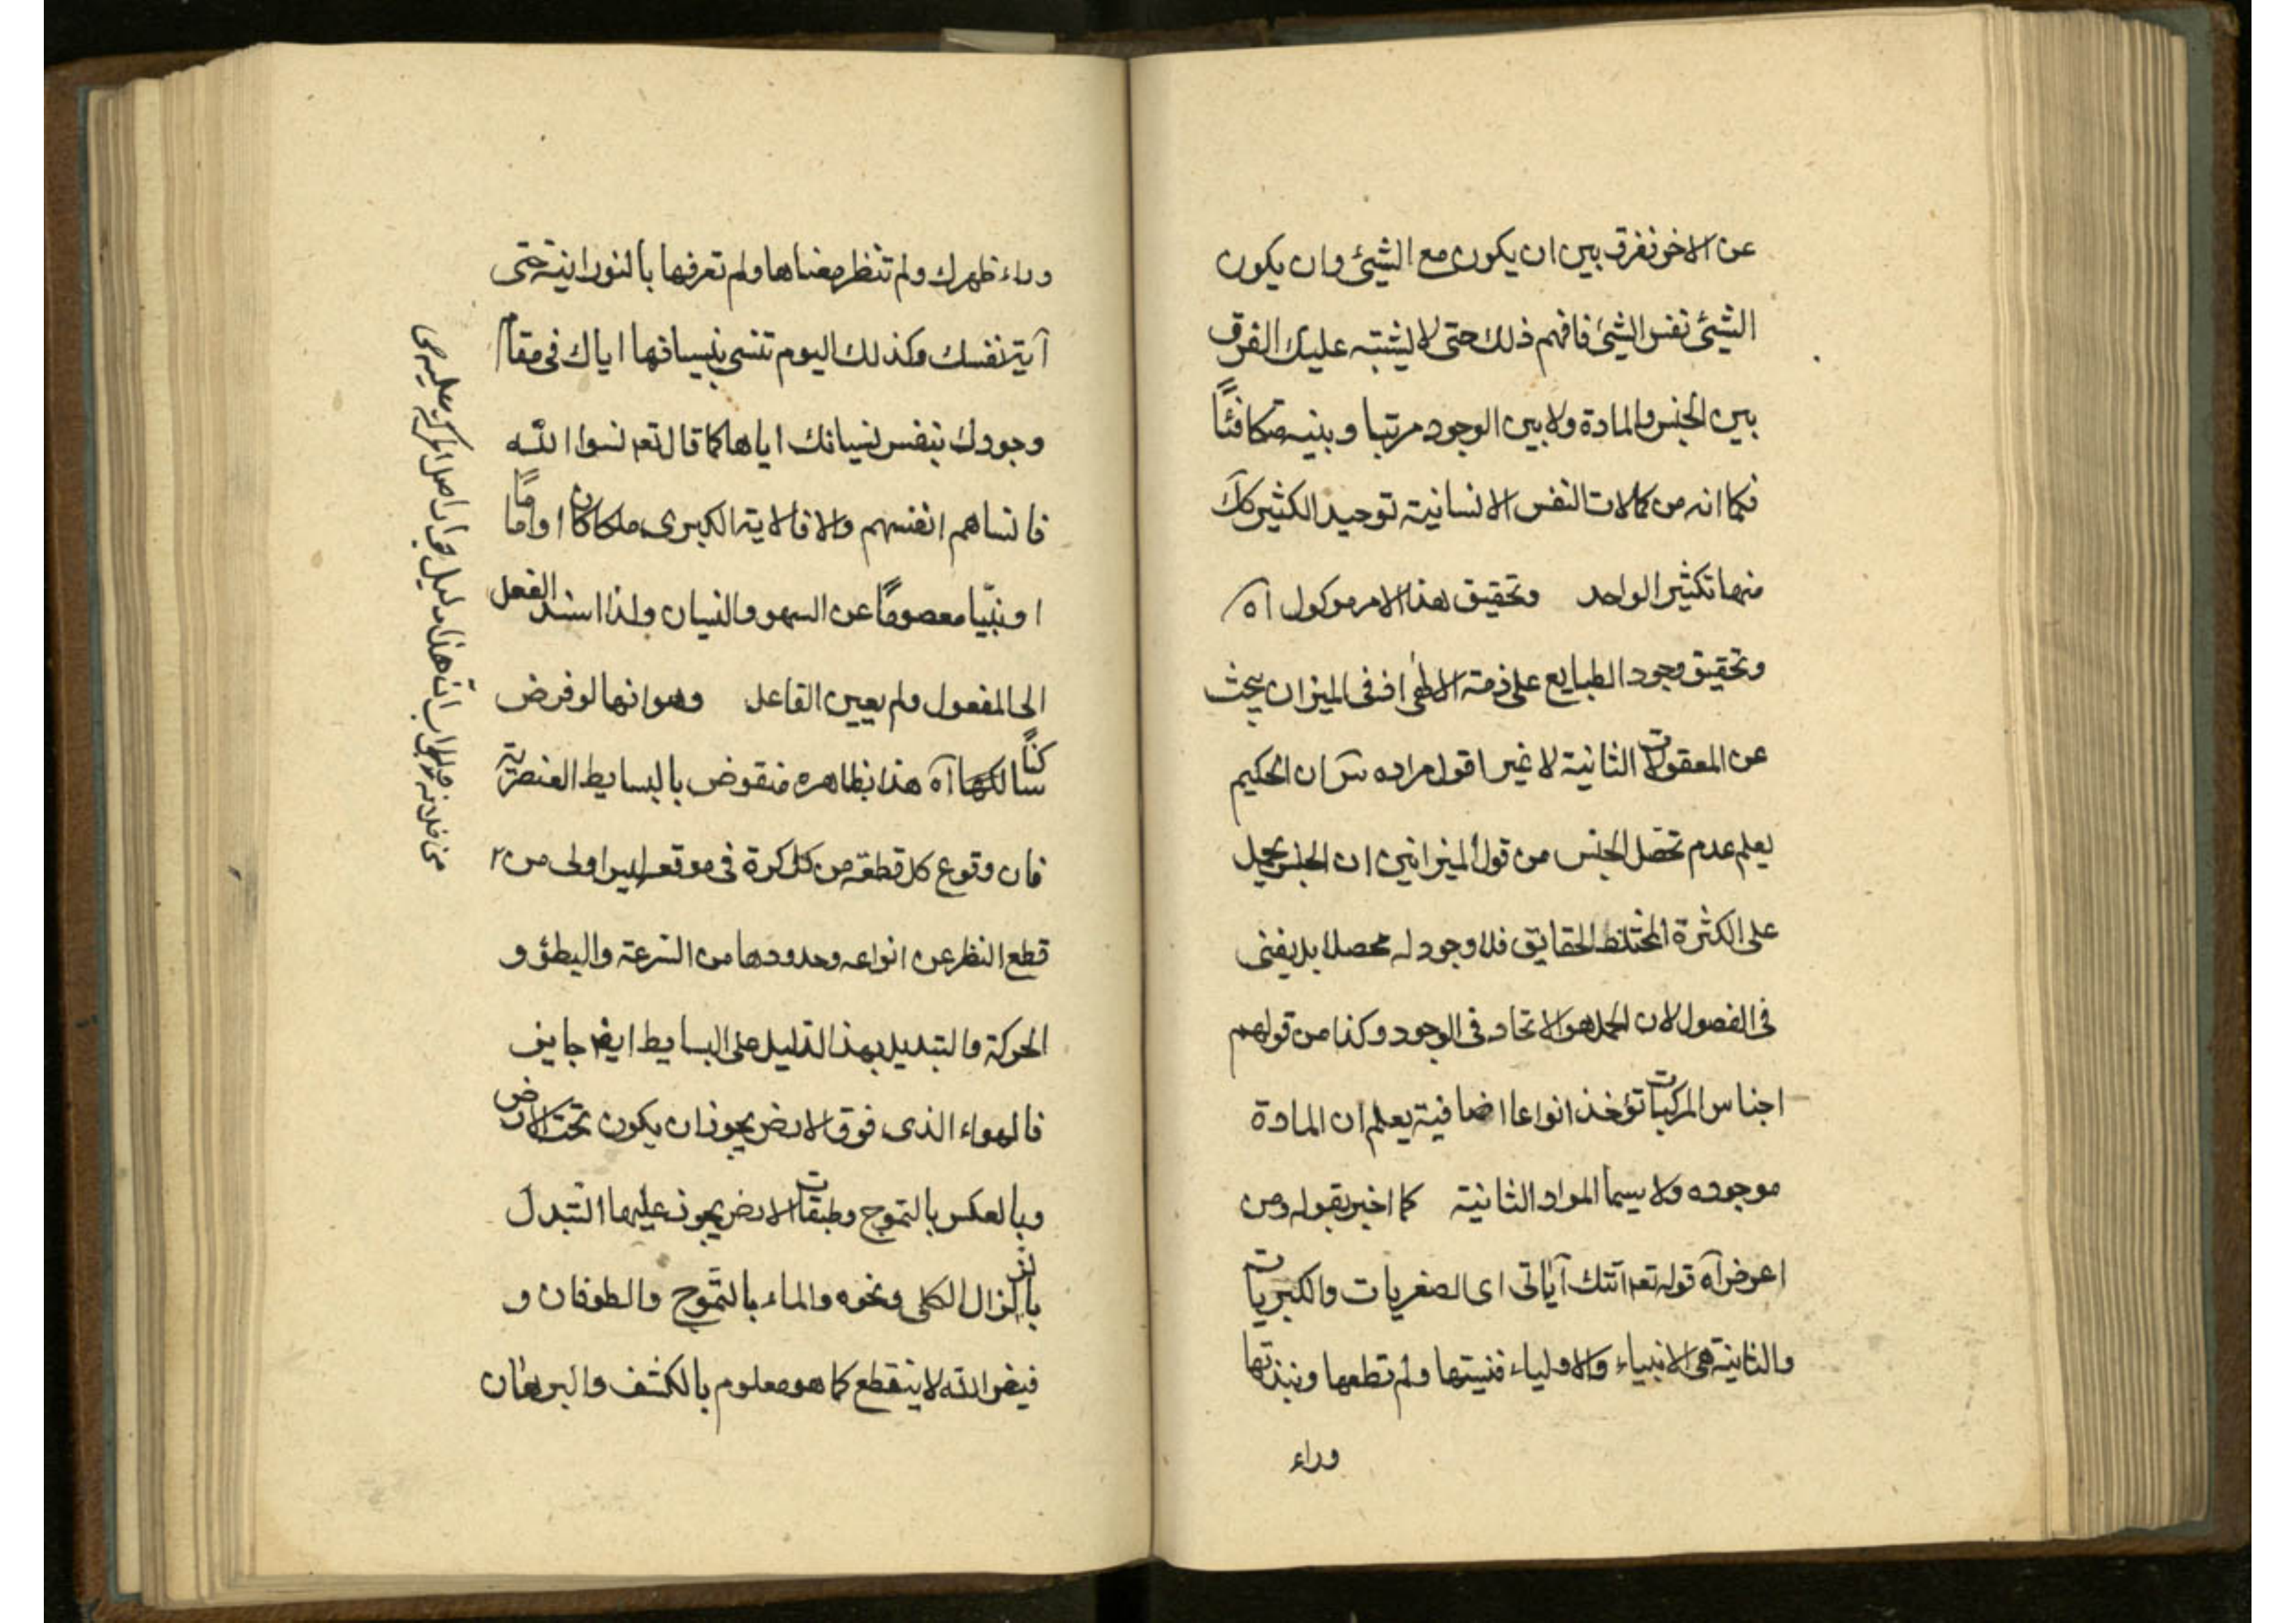 عن الاخر ففرق بين ان يكون مع الشيئ وان يكون
الشيئ نفس الشيئ فافهم ذلك حتى لا يشتبه عليك الفرق
بين الجنس والمادة ولا بين الوجود مرتبا و بينه متكافئاً
فكما انه من كمالات النفس الانسانية توحيد الكثير كك
منها تكثير الواحد وتحقيق هذا الامر موكول اه
وتحقيق وجود الطبايع على ذمة الالهى اذ فى الميزان يبحث
عن المعقولات الثانية لا غير اقول مراده ان الحكيم
يعلم عدم تحصل الجنس من قول الميزانيين ان الجنس يحمل
على الكثرة المختلفة الحقايق فلا وجود له محصلا بل يفنى
فى الفصول لان الحمل هو الاتحاد فى الوجود وكذا من قولهم
اجناس المركبات تؤخذ انواعا اضافية يعلم ان المادة
موجوده ولا سيما المواد الثانية كما اخبر بقوله ومن
اعرض آه قوله تعه اتتك آياتى اى الصغريات والكبريات
والثانية هى الانبياء والاولياء فنسيتها ولم تطعها ونبذتها
وراء
وراء ظهرك ولم تنظر معناها ولم تعرفها بالنورانية حتى
آية نفسك وكذلك اليوم تنسى بنسيانها اياك فى مقام
وجودك بنفس نسيانك اياها كما قال تعه نسوا الله
فانساهم انفسهم والا فالاية الكبرى ملكا كان او اماماً
او نبيّا معصوماً عن السهو والنسيان ولذا اسند الفعل
الى المفعول ولم يعين الفاعل وهو انها لو فرض
سا كنا لكها آه هذا بظاهره منقوض بالبسايط العنصرية
فان وقوع كل قطعة من كل كرة فى موقعه ليس اولى من
قطع النظر عن انواعه وحدودها من السرعة والبطؤ و
الحركة والتبديل بهذا الدليل على البسايط ايضا جايز
فالهواء الذى فوق الارض يجوز ان يكون تحت الارض
وبالعكس بالتموج وطبقات الارض يجوز عليها التبدل
بالزلزال الكلى ونحوه والماء بالتموج والطوفان و
فيض الله لا ينقطع كما هو معلوم بالكشف والبرهان